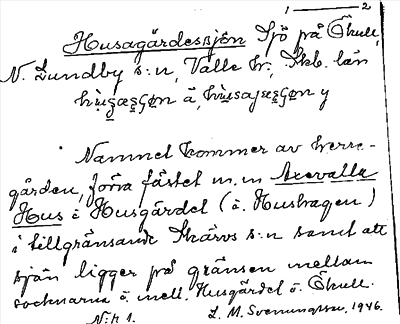 1 — 2
Husagärdessjön Sjö på Ökull,
N. Lundby s:n, Valle hr., Skb. län
å, y
Namnet kommer av herre-
gården, förra fästet m.m Axevalla
Hus å Husgärdet (ö. Hushagen)
i tillgränsande Skärvs s:n samt att
sjön ligger på gränsen mellan
socknarna å mell. Husgärdet ö. Ökull.
N:k 1. 1946.